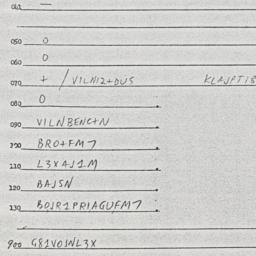 040 —
050 0
060 0
070 + / VILNIZ+DUS KLAJPTIS
080 0
090 VILNBENC+N
100 BRO+FM7
110 L3X4J1M
120 BAJSN
130 BOJR1PRIAGUFM7
900 G81VOJNL3X